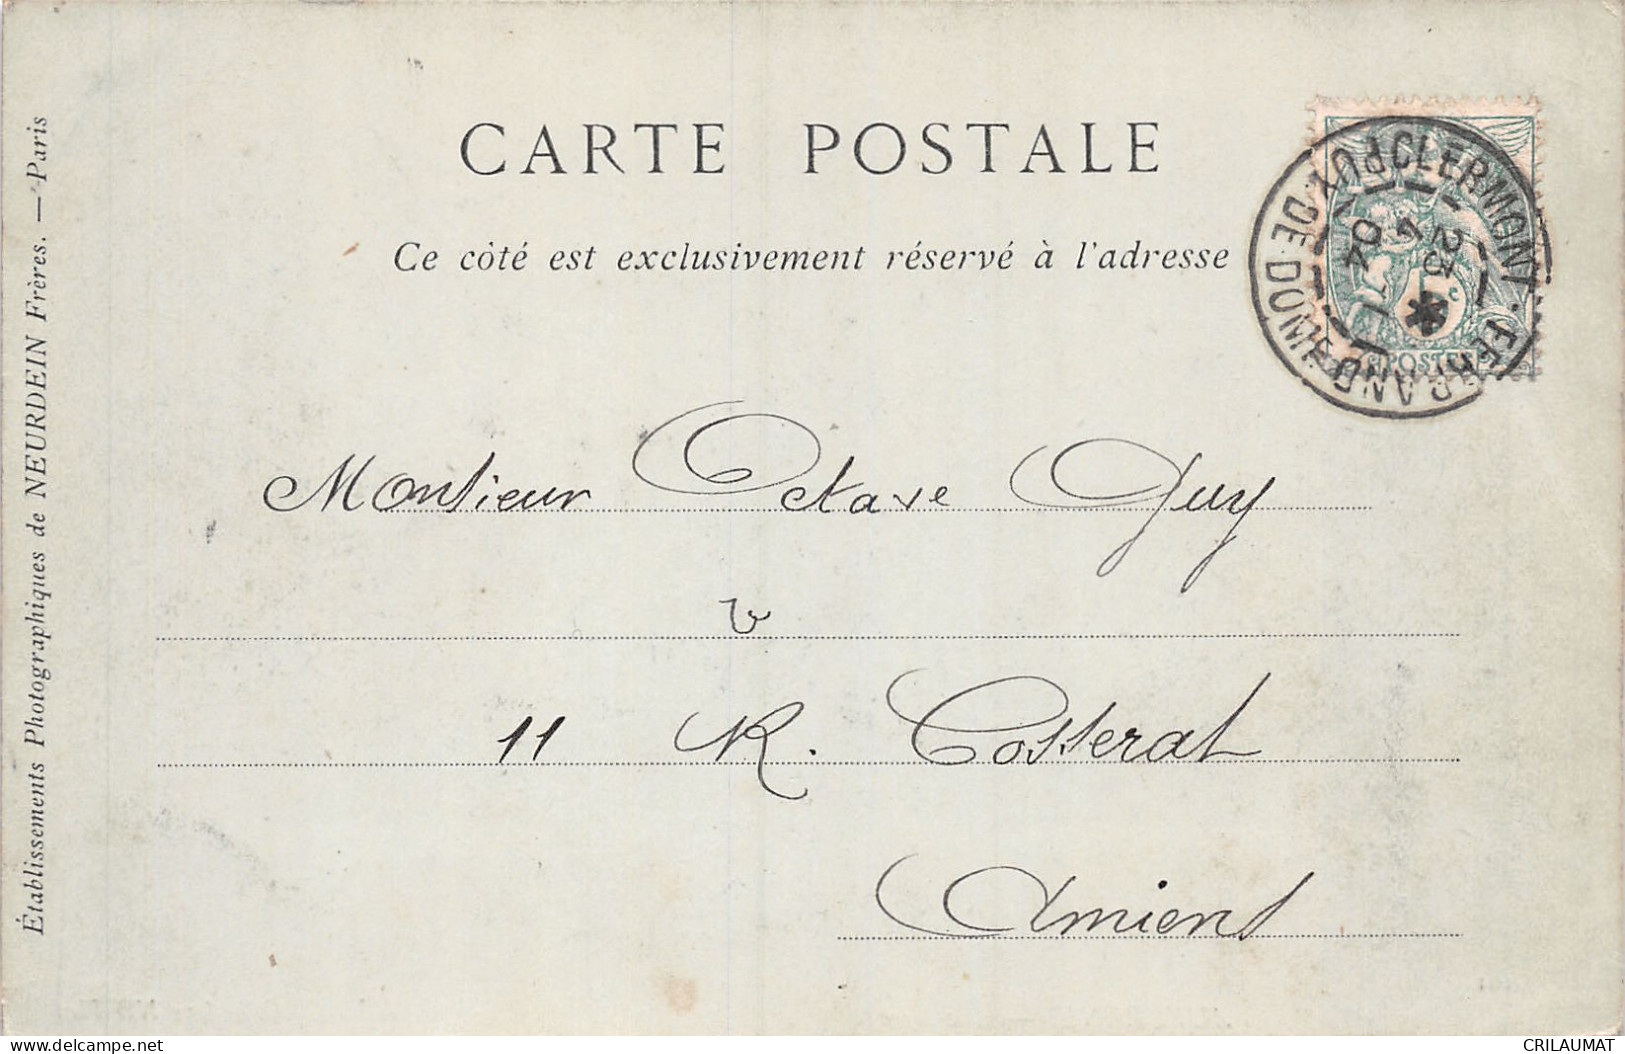 CARTE POSTALE
Ce côté est exclusivement réservé à l'adresse
CLERMONT-FERRAND
PUY-DE-DOME
23
4
04
5c
POSTES
Monsieur Octave Guy
11 R. Cosserat
Amiens
Établissements Photographiques de NEURDEIN Frères. — Paris
www.delcampe.net
CRILAUMAT